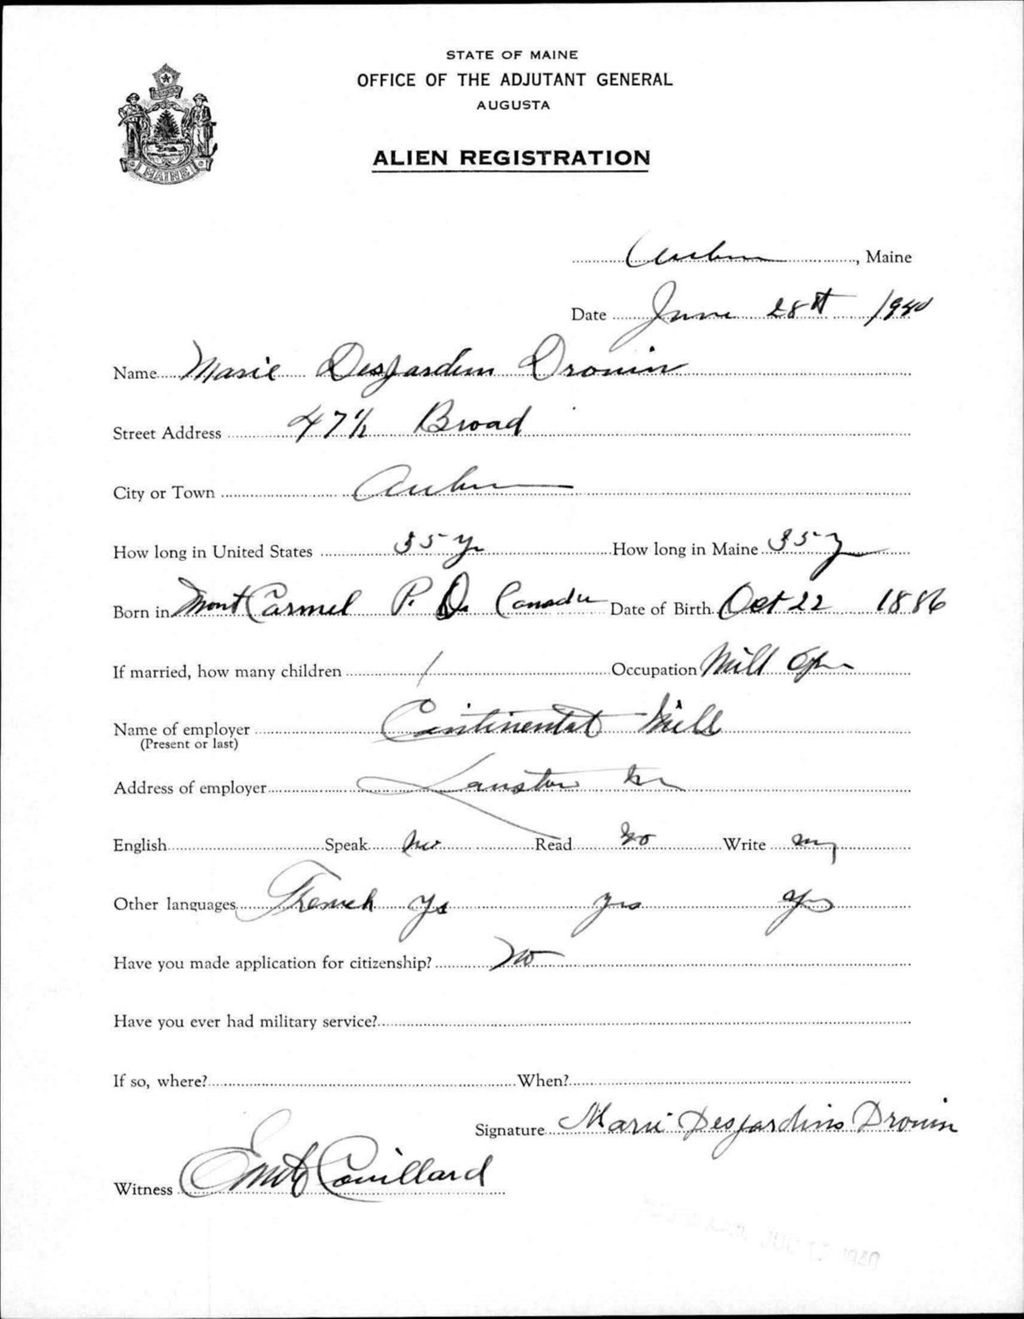 STATE OF MAINE
OFFICE OF THE ADJUTANT GENERAL
AUGUSTA
MAINE
ALIEN REGISTRATION
Auburn, Maine
Date June 28th 1940
Name Marie Desjardins Drouin
Street Address 47½ Broad
City or Town Auburn
How long in United States 35 yr How long in Maine 35 y
Born in Mont Carmel P. Q. Canada Date of Birth Oct 22 1886
If married, how many children 1 Occupation Mill Opr
Name of employer Continental Mill
(Present or last)
Address of employer Lewiston Me
English Speak No Read No Write
Other languages French Yes yes yes
Have you made application for citizenship? No
Have you ever had military service?
If so, where? When?
Signature Marie Desjardins Drouin
Witness Couillard
1940